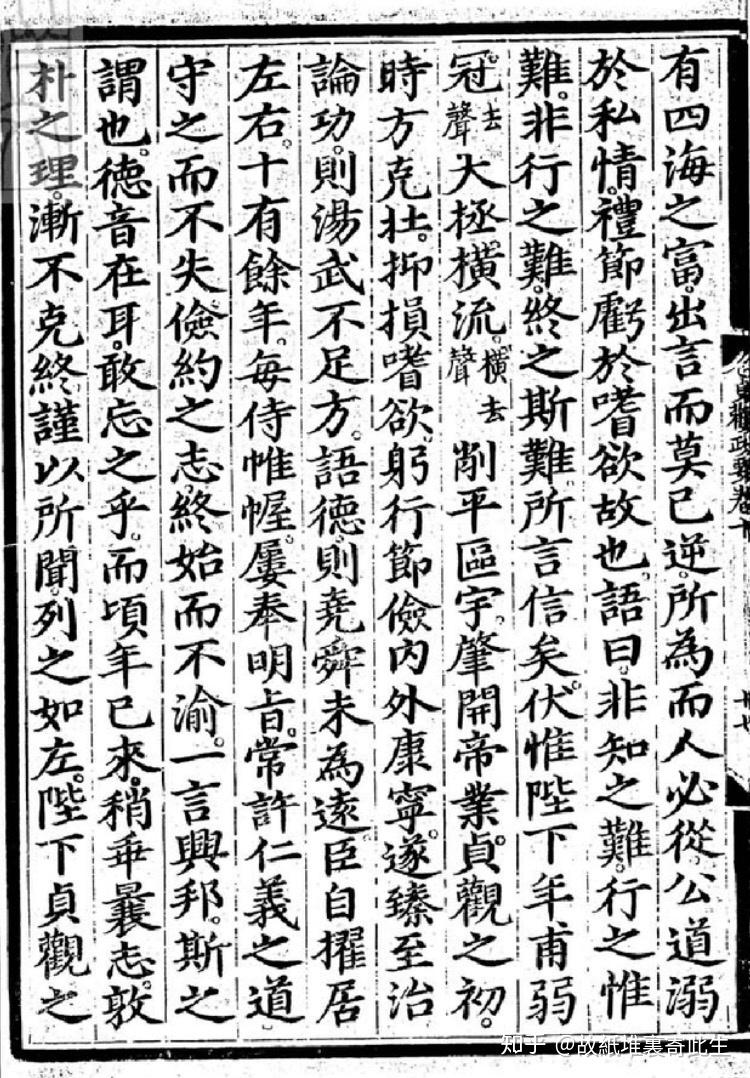 有四海之富。出言而莫己逆。所為而人必從。公道溺
於私情。禮節虧於嗜欲故也。語曰。非知之難。行之惟
難。非行之難。終之斯難。所言信矣。伏惟陛下年甫弱
冠。去聲大拯橫流。橫去聲削平區宇。肇開帝業。貞觀之初。
時方克壯。抑損嗜欲。躬行節儉。內外康寧。遂臻至治
論功。則湯武不足方。語德。則堯舜未為遠。臣自擢居
左右。十有餘年。每侍帷幄。屢奉明旨。常許仁義之道
守之而不失。儉約之志。終始而不渝。一言興邦。斯之
謂也。德音在耳。敢忘之乎。而頃年已來。稍乖曩志。敦
朴之理。漸不克終。謹以所聞。列之如左。陛下貞觀之
知乎 @故紙堆裏寄此生